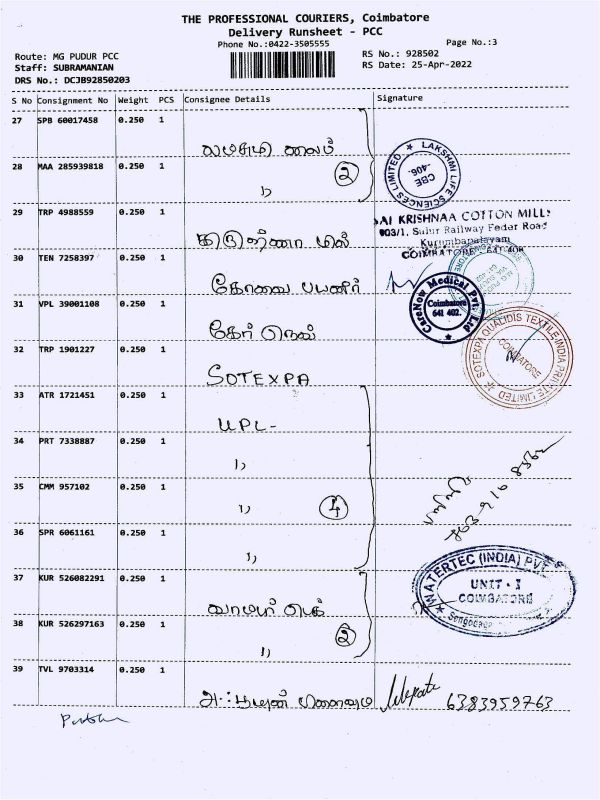 THE PROFESSIONAL COURIERS, Coimbatore
Delivery Runsheet - PCC
Phone No.:0422-3505555
Page No.:3
Route: MG PUDUR PCC
RS No.: 928502
Staff: SUBRAMANIAN
RS Date: 25-Apr-2022
DRS No.: DCJB92850203
S No Consignment No Weight PCS Consignee Details Signature
27 SPB 60017458 0.250 1
லட்சுமி லைப்
28 MAA 285939818 0.250 1 ②
LAKSHMI LIFE SCIENCES LIMITED
CBE
-406.
29 TRP 4988559 0.250 1
கிருஷ்ணா மில்
SAI KRISHNAA COTTON MILLS
903/1, Sulur Railway Feder Road
Kurumbapalayam
COIMBATORE - 641 406
30 TEN 7258397 0.250 1
கோவை பயனிர்
31 VPL 39001108 0.250 1
கேர் நௌ
CareNow Medical Pvt. Ltd
Coimbatore
641 402.
32 TRP 1901227 0.250 1
SOTEXPA
SOTEXPA QUALIDIS TEXTILE INDIA PRIVATE LIMITED
COIMBATORE
33 ATR 1721451 0.250 1
UPL-
34 PRT 7338887 0.250 1
35 CMM 957102 0.250 1 ④
36 SPR 6061161 0.250 1
37 KUR 526082291 0.250 1
வாட்டர் டெக்
WATERTEC (INDIA) PVT
UNIT - I
COIMBATORE
38 KUR 526297163 0.250 1 ②
39 TVL 9703314 0.250 1
6383959763